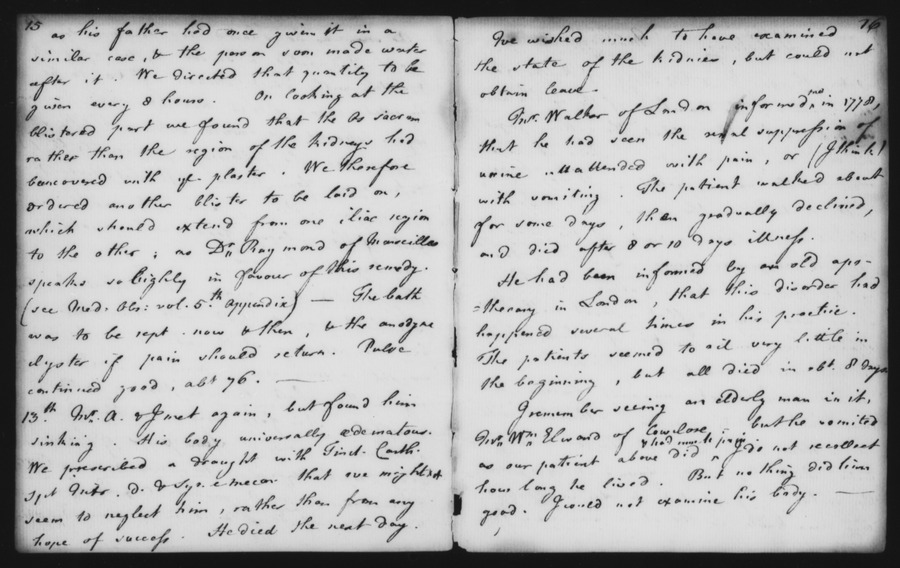 15
as his father had once given it in a
similar case, & the person soon made water
after it. We directed that quantity to be
given every 8 hours. On looking at the
blistered part we found that the Os sacrum
rather than the region of the kidneys had
been covered with ye plaster. We therefore
ordered another blister to be laid on,
which should extend from one iliac region
to the other; as Dr. Raymond of Marseilles
speaks so highly in favour of this remedy.
(see Med. Obs: vol. 5th Appendix) — The bath
was to be rept. now & then, & the anodyne
clyster if pain should return. Pulse
continued good, abt 76. —
13th. Mr. A. & I met again, but found him
sinking. His body universally œdematous.
We prescribed a draught with Tinct. Canth.
Spt Nitr. d. & Syr. e mecon. that we might not
seem to neglect him, rather than from any
hope of success. He died the next day.
16
We wished much to have examined
the state of the kidnies, but could not
obtain leave.
Mr. Walker of London informed me in 1778,
that he had seen the renal suppression of
urine unattended with pain, or (I think)
with vomiting. The patient walked about
for some days, then gradually declined,
and died after 8 or 10 days illness.
He had been informed by an old apo-
=thecary in London, that this disorder had
happened several times in his practice.
The patients seemed to ail very little in
the beginning, but all died in abt. 8 days
I remember seeing an elderly man in it,
Mr. Wm. Elward of but he vomited
& had much pain
as our patient above did ^ I do not recollect
how long he lived. But nothing did him
good. I could not examine his body. —